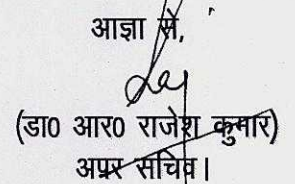 आज्ञा से,
(डा0 आर0 राजेश कुमार)
अपर सचिव।